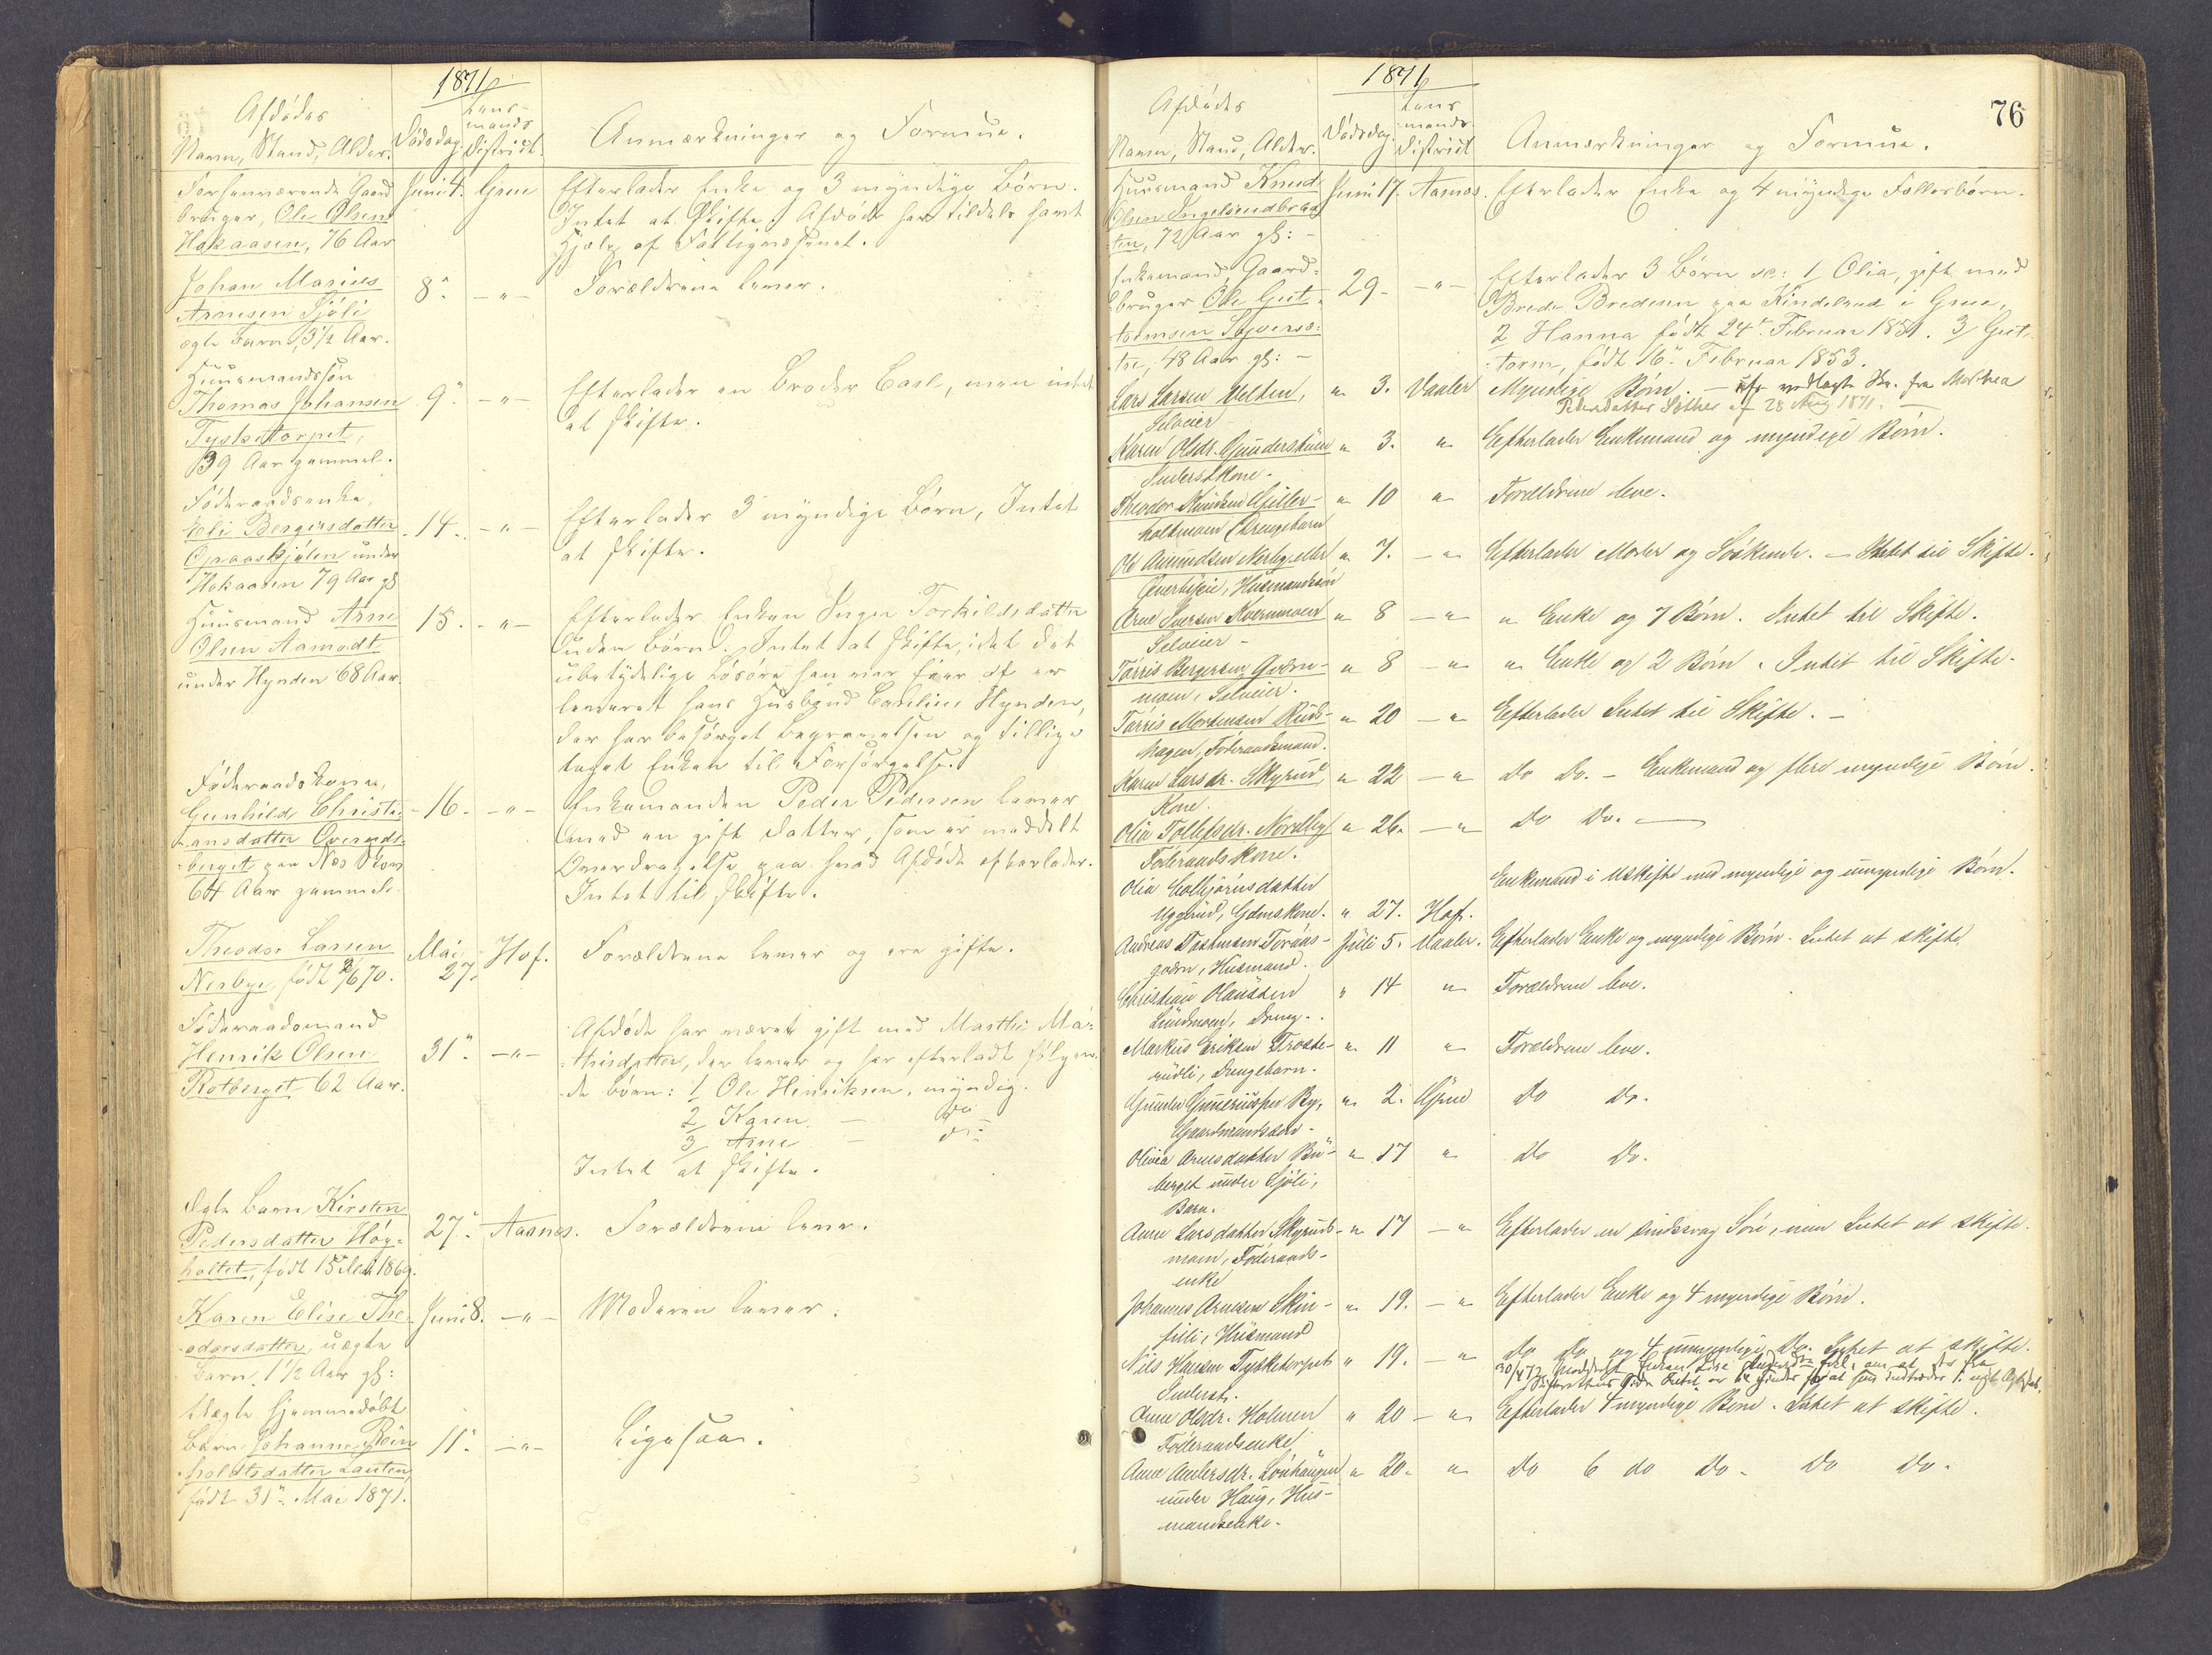 1871
Afdødes
Navn, Stand, Alder.
Dødsdag.
Lens-
mands
District.
Anmærkninger og Formue.
Forhenværende Gaard
bruger, Ole Olsen
Hokaasen, 76 Aar
Juni 4.
Grue
Efterlader Enke og 3 myndige Børn.
Intet at skifte. Afdøde har tildels havt
Hjælp af Fattigvæsenet.
Johan Marius
Arnesen Sjöli
ægte Barn, 3 1/2 Aar.
8.
-"-
Forældrene lever.
Huusmandssøn
Thomas Johansen
Tysketorpet,
39 Aar gammel.
9.
-"-
Efterlader en Broder Carl, men intet
at skifte.
Føderaadsenke,
Eli Bergersdatter
Opaaskjølen under
Hokaasen 79 Aar gl
14.
-"-
Efterlader 3 myndige Børn, Intet
at skifte.
Huusmand Arne
Olsen Aamodt
under Hynden 68 Aar
15.
-"-
Efterlader Enken Inger Torkildsdatter
uden Børn. Intet at skifte, idet det
ubetydelige Løsøre han var Eier af er
leveret hans Husbond Carelius Hynden,
der har besørget Begravelsen og tillige
taget Enken til Forsørgelse.
Føderaadskone,
Gunhild Christi-
ansdatter Overnds-
berget paa Næs
64 Aar gammel.
16.
-"-
Enkemanden Peder Pedersen lever
med en gift Datter, som er meddelt
Overdragelse paa hvad Afdøde efterlader.
Intet til skifte.
Theodor Larsen
Nerbye, født 2/6 70.
Mai
27.
Hof.
Forældrene lever og ere gifte.
Føderaadsmand
Henrik Olsen
Rotberget 62 Aar.
31.
-"-
Afdøde har været gift med Marthe Ma-
thisdatter, der lever og har efterladt følgen-
de Børn: 1/ Ole Henriksen, myndig.
2/ Karen - do
3/ Arne - do -
Intet at skifte.
Ægte Barn Kirsten
Pedersdatter Høg-
holtet, født 15 1869.
27.
Aasnes.
Forældrene lever.
Karen Elise The-
odorsdatter, uægte
Barn, 1 1/2 Aar gl:
Juni 8.
-"-
Moderen lever.
Uægte hjemmedøbt
Barn Johanne Rein
holdtsdatter Lauten,
født 31 Mai 1871.
11.
-"-
Ligesaa.
76
1871
Afdødes
Navn, Stand, Alder.
Dødsdag.
Lens
mands
District
Anmærkninger og Formue.
Huusmand Knud
Olsen Ingelsrudbraa
ten, 72 Aar gl: -
Juni 17.
Aasnæs.
Efterlader Enke og 4 myndige Fællesbørn.
Enkemand, Gaard-
bruger Ole Gut-
tormsen
tre, 48 Aar gl: -
29.
-"-
Efterlader 3 Børn sc: 1/ Olia, gift med
Brede Bredesen paa Kindelrud i Grue,
2/ Hanna født 24 Februar 1851. 3/ Gut-
torm, født 16 Februar 1853.
Lars Larsen Velten,
Selveier
" 3.
Vaaler
Myndige Børn. - vedlagt Skr. fra Mathea
Pedersdatter Sæther af 28 Aug 1871. -
Karen Olsdr. Gunderstuen
Inderstkone.
" 3.
"
Efterlader Enkemand og myndige Børn.
Theodor Knudsen Giller-
holtmoen Drengebarn
" 10
"
Forældrene leve.
Ole Amundsen Nerby eller
Husmandssøn
" 7.
-"
Efterlader Moder og Søskende. - Intet til Skifte.
Arne Iversen Kvernmoen
Selveier -
" 8
-"
" Enke og 7 Børn. Intet til Skifte.
Torris Bergersen Graven-
moen, Selveier.
" 8
-"
" Enke og 2 Børn. Intet til Skifte.
Torris Mortensen Ruds-
hagen, Føderaadsmand.
" 20
-"
Efterlader Intet til Skifte. -
Karen Larsdr. Skyrud,
Kone.
" 22
-"
Do Do. - Enkemand og flere myndige Børn.
Olia Tollefsdr. Nordby
Føderaadskone.
" 26.
-"
Do Do. -
Olia Colbjørnsdatter
Uggerud, Gdmskone.
" 27.
Hof.
Enkemand i Uskifte med myndige og umyndige Børn.
Andreas Toraas-
, Husmand.
Juli 5.
Vaaler.
Efterlader Enke og myndige Børn. Intet at skifte
Christian Olaussen
Lundmoen, Dreng.
" 14
"
Forældrene leve.
Markus Eriksen Troste-
rudli, Drengebarn.
" 11
"
Forældrene leve.
Gunder Gunerius By,
Gaardmandssøn -
" 2.
Grue
Do Do.
Olivia Arnesdatter Bu-
berget under Sjøli,
Barn.
" 17
"
Do Do.
Anne Larsdatter Skyruds-
moen, Føderaads-
enke
" 17
-"
Efterlader en sindssvag Søn, men Intet at skifte.
Johannes Arnesen Skin-
, Husmand
" 19.
-"
Efterlader Enke og 4 myndige Børn.
Nils Hansen Tysketorpet
Inderst.
" 19.
-"
do do og 4 umyndige Do. Intet at skifte.
30/4 72 meddelt Enken Lise
Anne Olsdr. Holmen
Føderaadsenke
" 20
-"
Efterlader 4 myndige Børn. Intet at skifte.
Anne Andersdr. Lønhaugen
under Haug, Hus-
mandsenke.
" 20.
"
Do 6 do Do. Do Do.